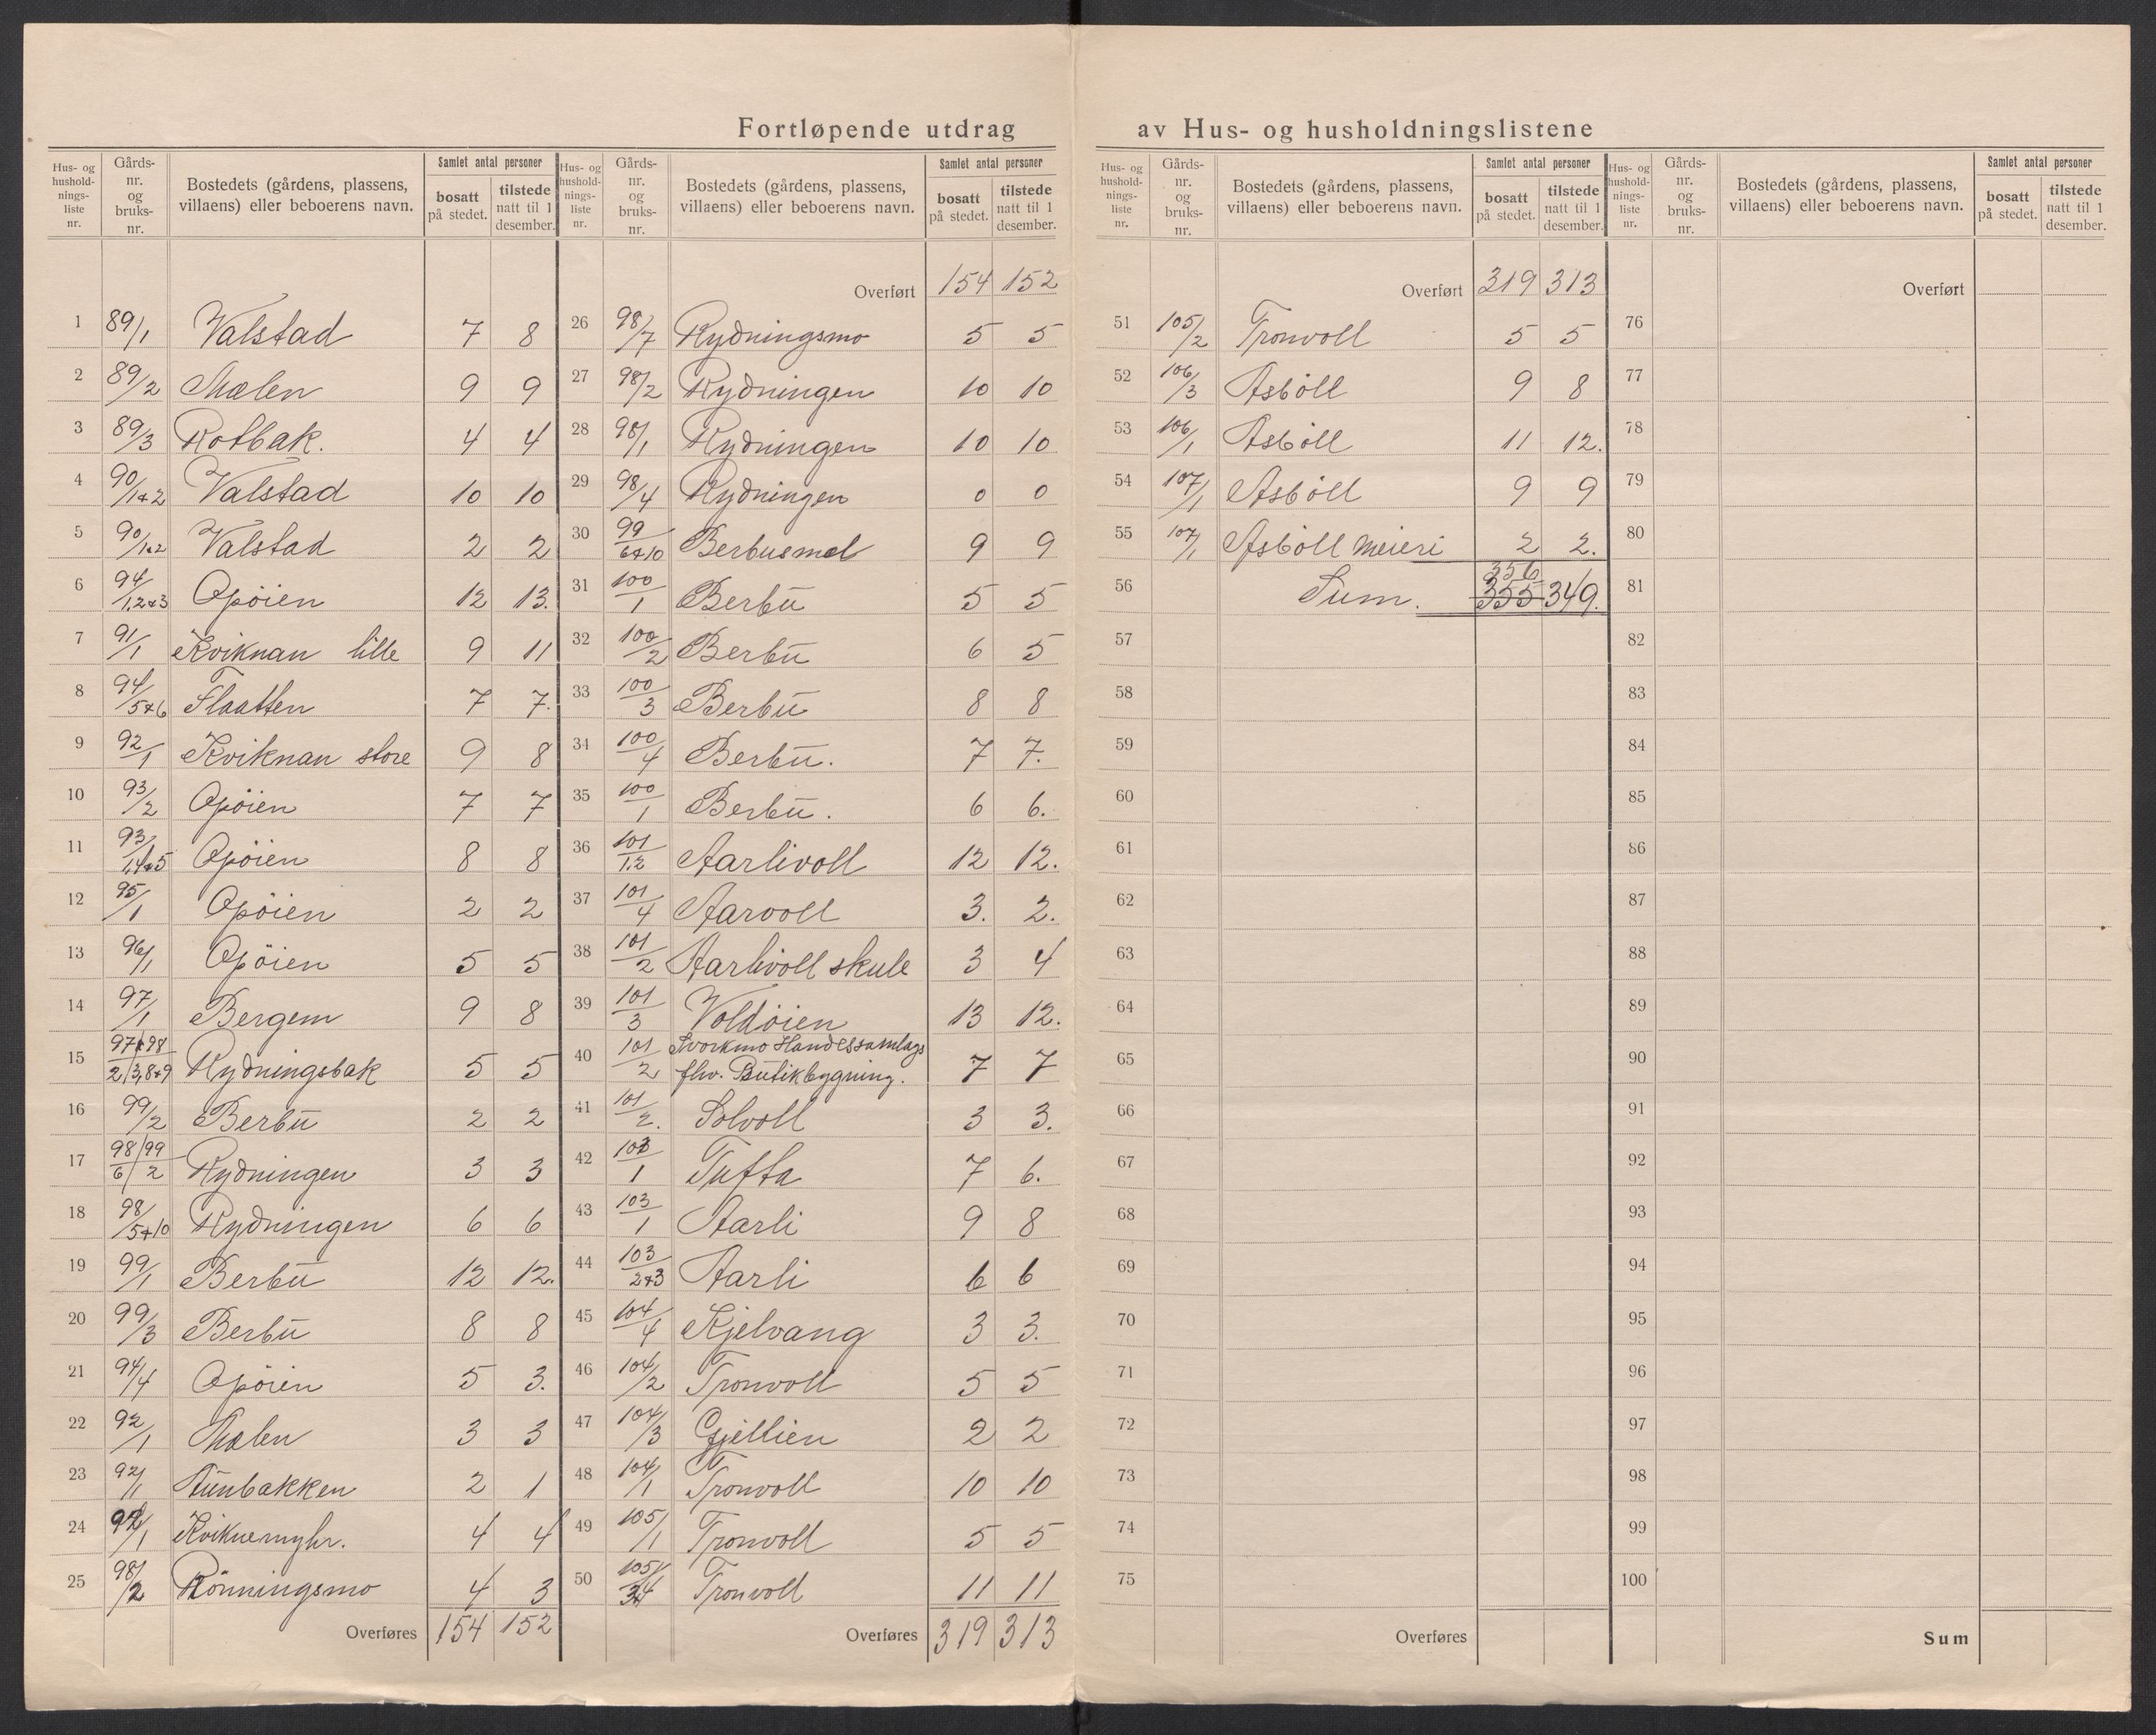 Fortløpende utdrag av Hus- og husholdningslistene
Hus- og hushold-nings-liste nr. | Gårds-nr. og bruks-nr. | Bostedets (gårdens, plassens, villaens) eller beboerens navn. | Samlet antal personer | bosatt på stedet. | tilstede natt til 1 desember.
1 89/1 Valstad 7 8
2 89/2 Mælen 9 9
3 89/3 Rotbak. 4 4
4 90/1+2 Valstad 10 10
5 90/1+2 Valstad 2 2
6 94/1,2+3 Opöien 12 13.
7 91/1 Kviknan lille 9 11
8 94/5+6 Flaatten 7 7.
9 92/1 Kviknan store 9 8
10 93/2 Opöien 7 7
11 93/1,4+5 Opöien 8 8
12 95/1 Opöien 2 2
13 96/1 Opöien 5 5
14 97/1 Bergem 9 8
15 97+98 2/3,8+9 Rydningsbak 5 5
16 99/2 Berbu 2 2
17 98/99 6/2 Rydningen 3 3
18 98/5+10 Rydningen 6 6
19 99/1 Berbu 12 12.
20 99/3 Berbu 8 8
21 94/4 Opöien 5 3.
22 92/1 Mælen 3 3
23 92/1 Aunbakken 2 1
24 92/1 Kviknemyhr. 4 4
25 98/2 Rönningsmo 4 3
Overføres 154 152
Hus- og hushold-nings-liste nr. | Gårds-nr. og bruks-nr. | Bostedets (gårdens, plassens, villaens) eller beboerens navn. | Samlet antal personer | bosatt på stedet. | tilstede natt til 1 desember.
Overført 154 152
26 98/7 Rydningsmo 5 5
27 98/2 Rydningen 10 10
28 98/1 Rydningen 10 10
29 98/4 Rydningen 0 0
30 99/6+10 Berbusmel 9 9
31 100/1 Berbu 5 5
32 100/2 Berbu 6 5
33 100/3 Berbu 8 8
34 100/4 Berbu. 7 7.
35 100/1 Berbu. 6 6.
36 101/1.2 Aarlivoll 12 12.
37 101/4 Aarvoll 3. 2.
38 101/2 Aarlivoll skule 3 4
39 101/3 Voldöien 13 12.
40 101/2 Svorkmo Handelssamlags
fhv. Butikbygning. 7 7
41 101/2. Solvoll 3 3.
42 103/1 Tufta 7 6.
43 103/1 Aarli 9 8
44 103/2+3 Aarli 6 6
45 104/4 Kjelvang 3 3.
46 104/2 Tronvoll 5 5
47 104/3 Gjellien 2 2
48 104/1 Tronvoll 10 10
49 105/1 Tronvoll 5 5
50 105/3+4 Tronvoll 11 11
Overføres 319 313
Hus- og hushold-nings-liste nr. | Gårds-nr. og bruks-nr. | Bostedets (gårdens, plassens, villaens) eller beboerens navn. | Samlet antal personer | bosatt på stedet. | tilstede natt til 1 desember.
Overført 319 313
51 105/2 Tronvoll 5 5
52 106/3 Asböll 9 8
53 106/1 Asböll 11 12.
54 107/1 Asböll 9 9
55 107/1 Asböll meieri 2 2.
56 Sum. 356 355 349.
57
58
59
60
61
62
63
64
65
66
67
68
69
70
71
72
73
74
75
Overføres
Hus- og hushold-nings-liste nr. | Gårds-nr. og bruks-nr. | Bostedets (gårdens, plassens, villaens) eller beboerens navn. | Samlet antal personer | bosatt på stedet. | tilstede natt til 1 desember.
Overført
76
77
78
79
80
81
82
83
84
85
86
87
88
89
90
91
92
93
94
95
96
97
98
99
100
Sum